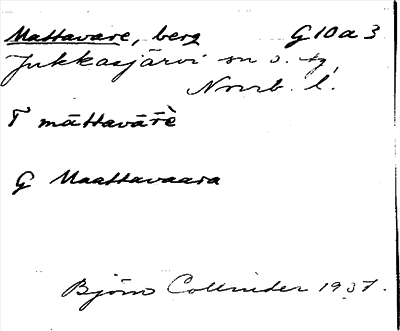 Mattavare, berg G10a3
Jukkasjärvi sn o. tg
Norrb. l.
T māttavāřè
G Maattavaara
Björn Collinder 1937.